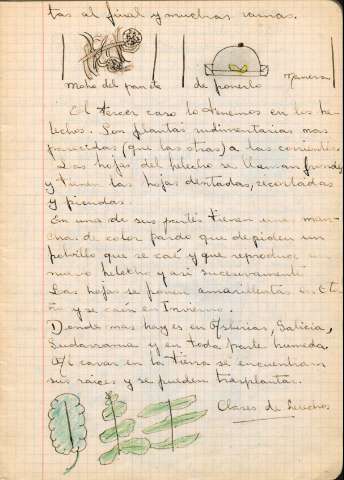 tas al final y muchas ramas.
Moho del pan de
de ponerlo
Manera
El tercer caso lo tenemos en los he-
lechos. Son plantas rudimentarias mas
parecidas (que las otras) a las corrientes.
Las hojas del helecho se llaman frondes
y tienen las hojas dentadas, recortadas
y picudas.
En una de sus partes tienen una man-
cha de color pardo que despiden un
polvillo que se caé y que reproduce un
nuevo helecho y asi sucesivamente.
Las hojas se ponen amarillentas en Oto-
ño y se caén en Invierno.
Donde mas hay es en Asturias, Galicia,
y en toda parte humeda.
Al cavar en la tierra se encuentran
sus raices y se pueden trasplantar.
Clases de helechos